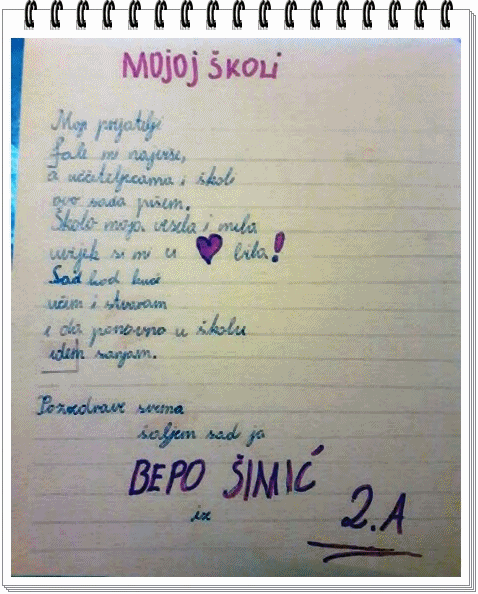 MOJOJ ŠKOLI
Moji prijatelji
fale mi najviše,
a učiteljicama i školi
ovo sada pišem.
Školo moja vesela i mila
uvijek si mi u ♥ bila!
Sad kod kuće
učim i stvaram
i da ponovno u školu
idem sanjam.
Pozdrave svima
šaljem sad ja
BEPO ŠIMIĆ
iz
2.A